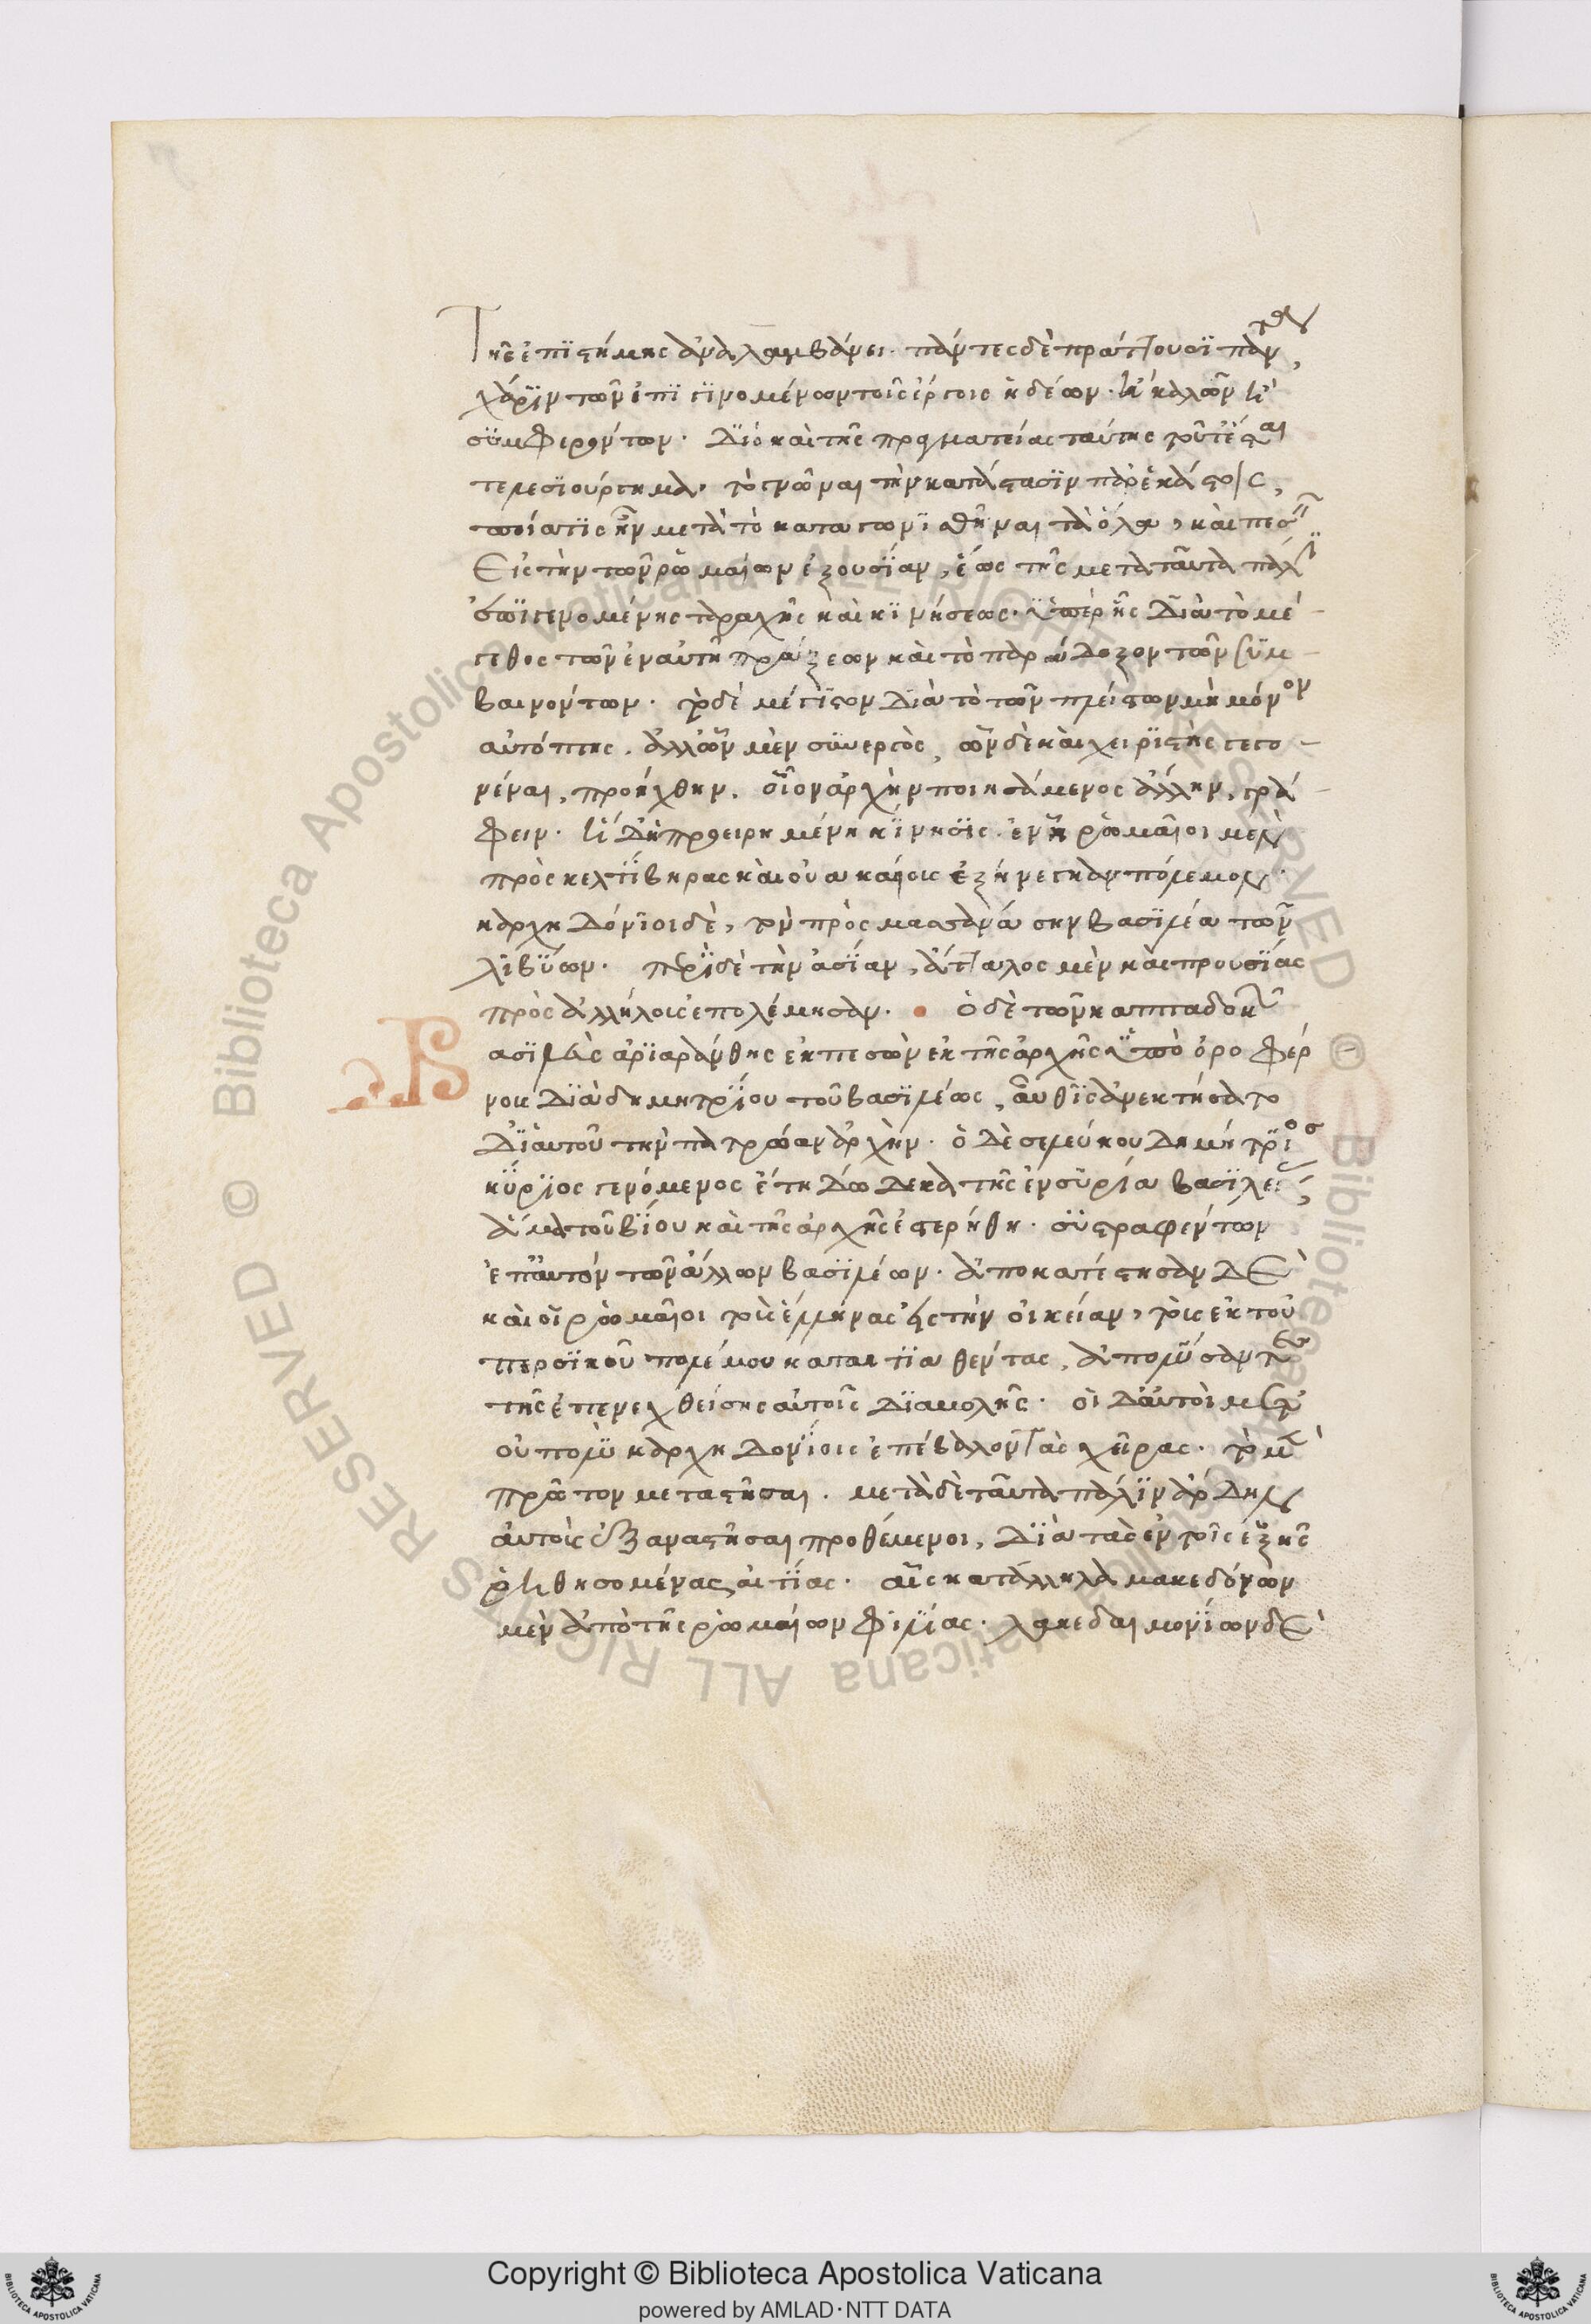 Τῆς ἐπιστήμης ἀναλαμβάνει. πάντες δὲ πράττουσι πάντα
χάριν τῶν ἐπιγινομένων τοῖς ἔργοις ἡδέων. ἢ καλῶν ἢ
συμφερόντων. Διὸ καὶ τῆς πραγματείας ταύτης τοῦτ' ἔσται
τελεσιούργημα. τὸ γνῶναι τὴν κατάστασιν παρ' ἑκάστοις,
ποία τις ἦν μετὰ τὸ καταγωνισθῆναι τὰ ὅλα, καὶ πεσεῖν
Εἰς τὴν τῶν ῥωμαίων ἐξουσίαν, ἕως τῆς μετὰ ταῦτα πάλιν
ἐπιγενομένης ταραχῆς καὶ κινήσεως. ὑπὲρ ἧς Διὰ τὸ μέ-
γεθος τῶν ἐν αὐτῇ πράξεων καὶ τὸ παράδοξον τῶν συμ-
βαινόντων. τὸ δὲ μέγιστον Διὰ τὸ τῶν πλείστων μὴ μόνον
αὐτόπτης. ἀλλ' ὧν μὲν συνεργὸς, ὧν δὲ καὶ χειριστὴς γεγο-
νέναι, προήχθην. οἷον ἀρχὴν ποιησάμενος ἄλλην, γρά-
φειν. ἢ Δὴ προειρημένη κίνησις. ἐν ᾗ ῥωμαῖοι μὲν
πρὸς κελτίβηρας καὶ οὐακαίους ἐξήνεγκαν πόλεμον.
καρχηδόνιοι δὲ, τὸν πρὸς μασσανάσην βασιλέα τῶν
λιβύων. περὶ δὲ τὴν ἀσίαν, ἄτταλος μὲν καὶ προυσίας
πρὸς ἀλλήλους ἐπολέμησαν. ὁ δὲ τῶν καππαδοκῶν
Βασιλεὺς ἀριαράνθης ἐκπεσὼν ἐκ τῆς ἀρχῆς ὑπὸ ὀροφέρ-
νου Διὰ δημητρίου τοῦ βασιλέως, αὖθις ἀνεκτήσατο
Δι' αὐτοῦ τὴν πατρῴαν ἀρχήν. ὁ Δὲ σελεύκου Δημήτριος
κύριος γενόμενος ἔτη Δώδεκα τῆς ἐν συρία βασιλείας
ἅμα τοῦ βίου καὶ τῆς ἀρχῆς ἐστερήθη. συστραφέντων
ἐπ' αὐτὸν τῶν ἄλλων βασιλέων. ἀποκατέστησαν Δὲ
καὶ οἱ ῥωμαῖοι τοὺς ἕλληνας εἰς τὴν οἰκείαν, τοὺς ἐκ τοῦ
περσικοῦ πολέμου καταιτιαθέντας, ἀπολύσαντες
τῆς ἐπενεχθείσης αὐτοῖς Διαβολῆς. οἱ Δ' αὐτοὶ μετ'
οὐ πολὺ καρχηδονίοις ἐπέβαλον τὰς χεῖρας. τὸ μὲν
πρῶτον μεταστῆσαι. μετὰ δὲ ταῦτα πάλιν ἄρδην
αὐτοὺς ἐξαναστῆσαι προθέμενοι, Διὰ τὰς ἐν τοῖς ἑξῆς
ῥηθησομένας αἰτίας. αἷς κατάλληλα μακεδόνων
μὲν ἀπὸ τῆς ῥωμαίων φιλίας. λακεδαιμονίων δὲ